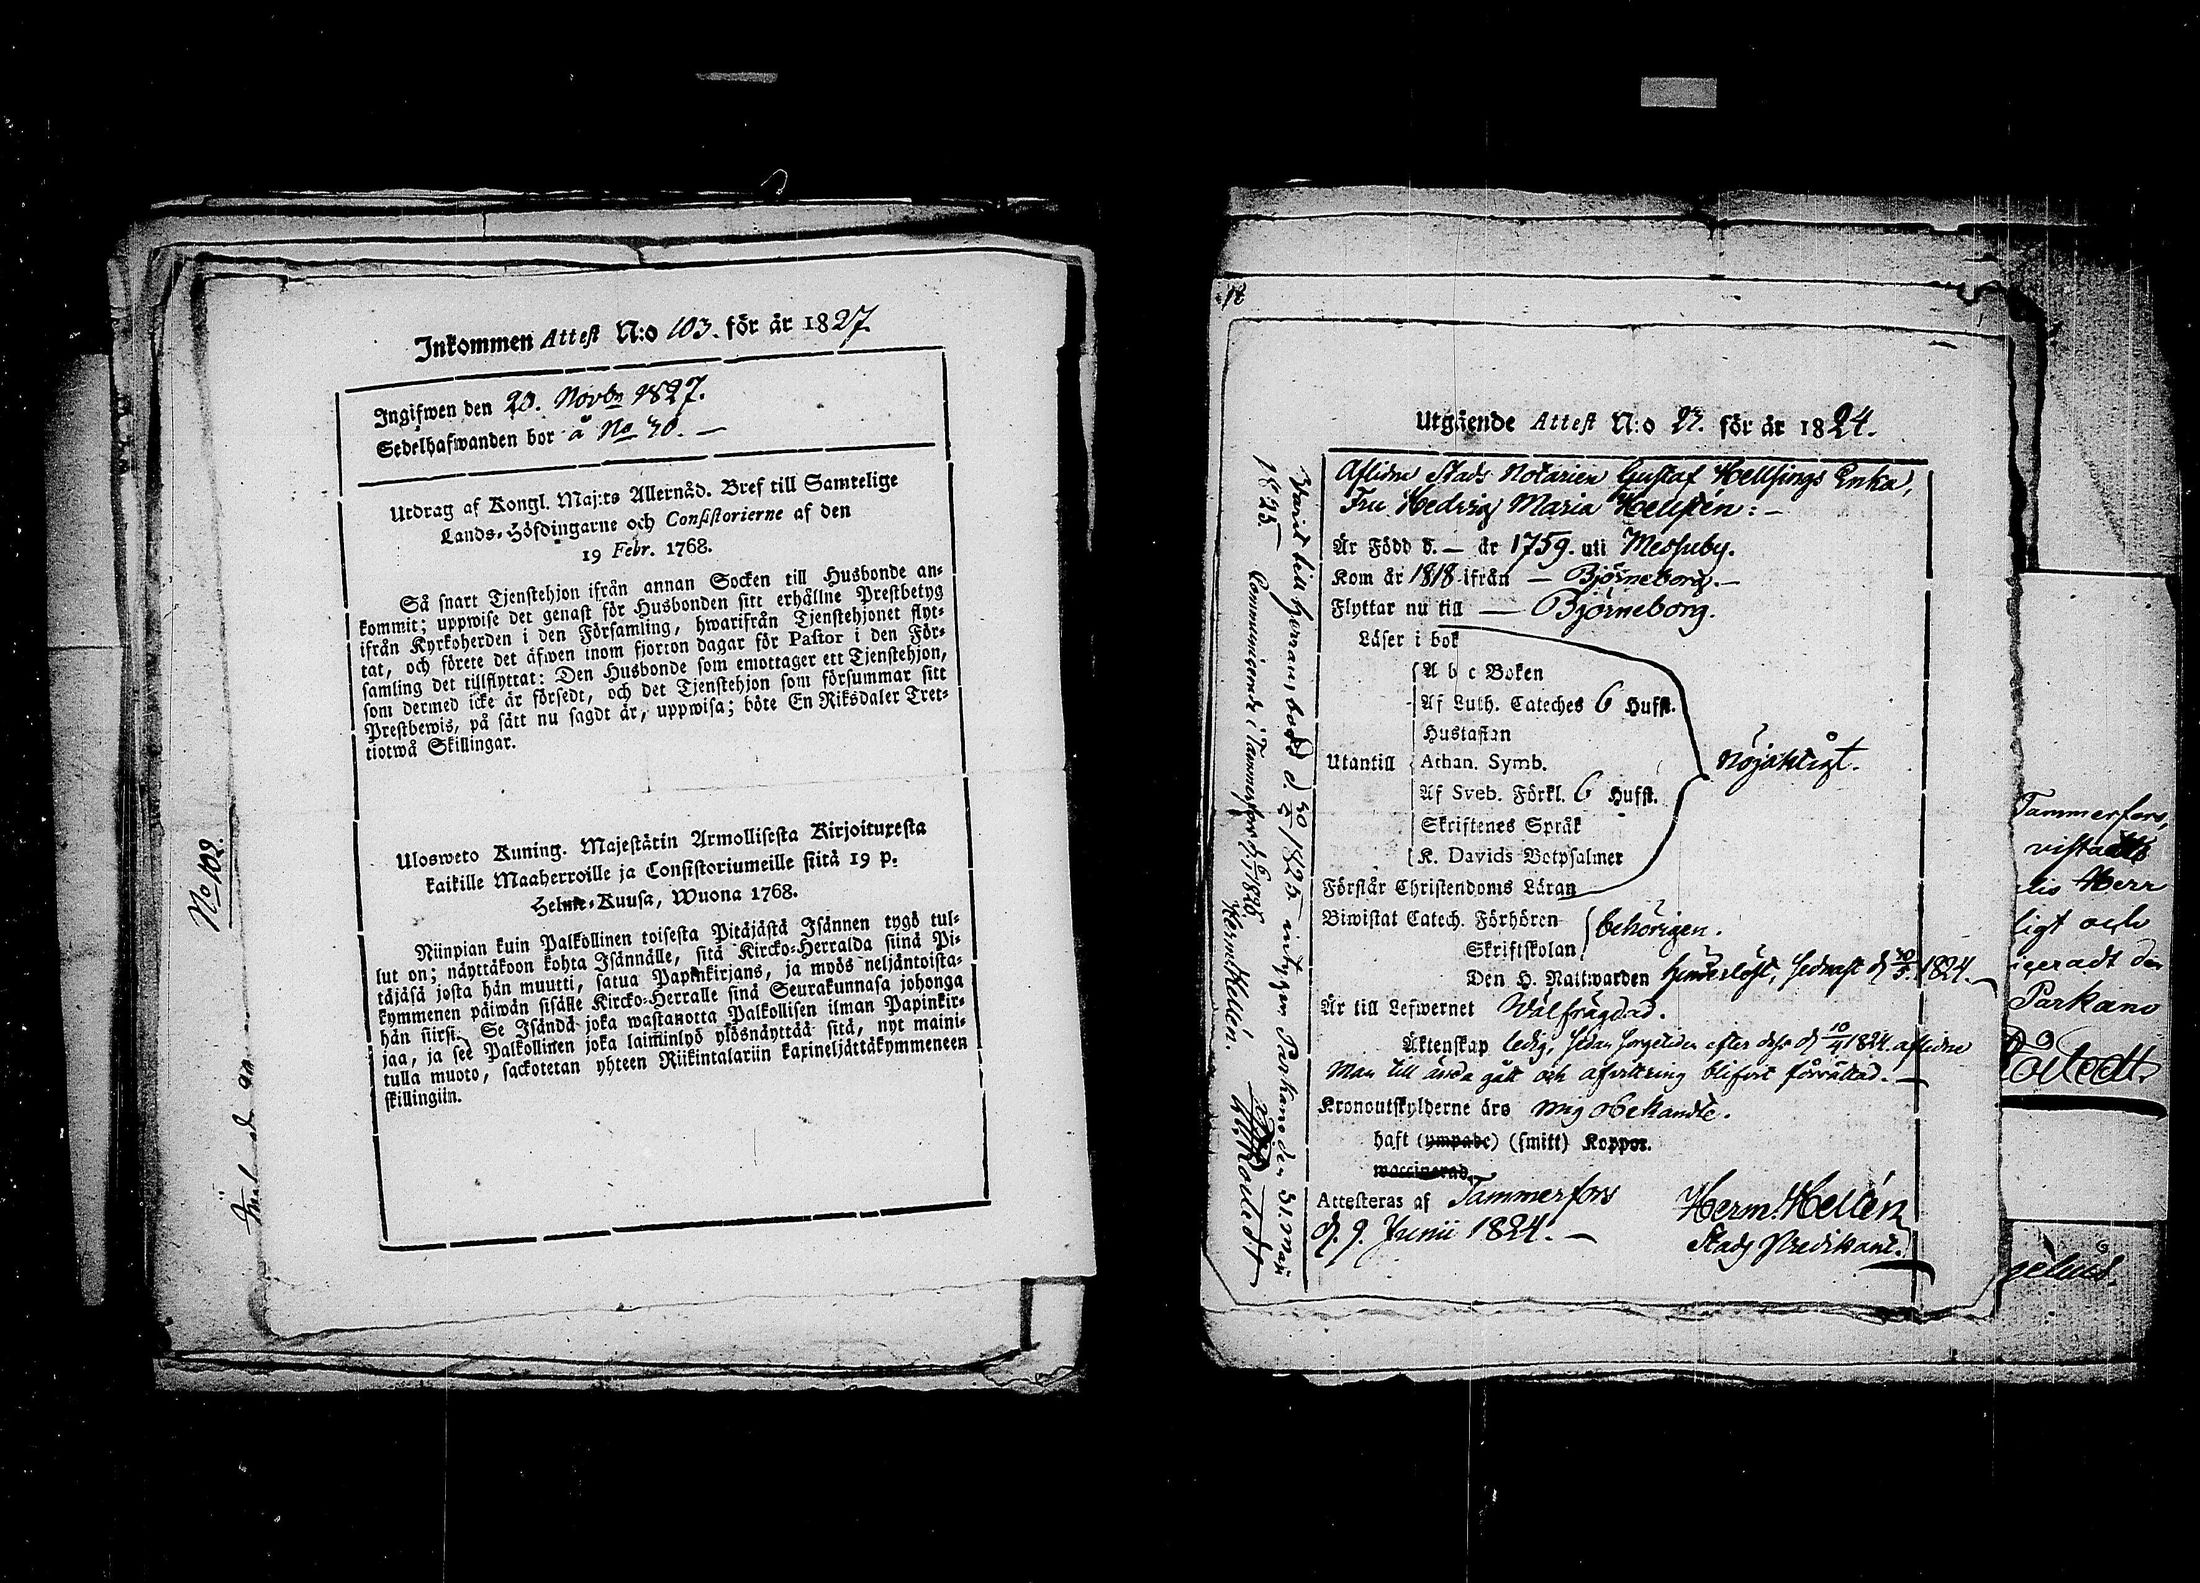 Inkommen Attest N:o 103. för år 1827.
Ingifwen den 20. Novbr 1827.
Sedelhafwanden bor å No 30. —
Utdrag af Kongl. Maj:ts Allernåd. Bref till Samtelige
Lands-Höfdingarne och Consistorierne af den
19 Febr. 1768.
Så snart Tjenstehjon ifrån annan Socken till Husbonde an-
kommit; uppwise det genast för Husbonden sitt erhållne Prestbetyg
ifrån Kyrkoherden i den Församling, hwarifrån Tjenstehjonet flyt-
tat, och förete det äfwen inom fjorton dagar för Pastor i den För-
samling det tillflyttat: Den Husbonde som emottager ett Tjenstehjon,
som dermed icke är försedt, och det Tjenstehjon som försummar sitt
Prestbewis, på sätt nu sagdt är, uppwisa; böte En Riksdaler Tret-
tiotwå Skillingar.
Ulosweto Kuning. Majestätin Armollisesta Kirjoituxesta
kaikille Maaherroille ja Consistoriumeille siitä 19 p.
Helme-Kuusa, Wuona 1768.
Niinpian kuin Palkollinen toisesta Pitäjästä Isännen tygö tul-
lut on; näyttäkoon kohta Isännälle, sitä Kircko-Herralda siinä Pi-
täjäsä josta hän muutti, satua Papinkirjans, ja myös neljäntoista-
kymmenen päiwän sisälle Kircko-Herralle sinä Seurakunnasa johonga
hän siirsi. Se Isändä joka wastanotta Palkollisen ilman Papinkir-
jaa, ja see Palkollinen joka laiminlyö ylösnäyttää sitä, nyt maini-
tulla muoto, sackotetan yhteen Riikintalariin kaxineljättäkymmeneen
skillingiin.
No 102.
18
Utgående Attest N:o 27. för år 1824.
Aflidne Stads Notarien Gustaf Hellsings Enka,
Fru Hedvig Maria Hellstén: —
Är Född d. — år 1759. uti Messuby.
Kom år 1818 ifrån — Björneborg. —
Flyttar nu till — Björneborg.
Läser i bok
A b c Boken
Af Luth. Cateches 6 Hufst.
Hustaflan
Utantill Athan. Symb. nöjaktigt.
Af Sveb. Förkl. 6 Hufst.
Skriftenes Språk
K. Davids Botpsalmer
Förstår Christendoms Läran
Biwistat Catech. Förhören behörigen.
Skriftskolan
Den H. Nattwarden sednast d. 1824.
Är till Lefwernet Wälfrägdad.
Äktenskap ledig, sedan efter dess d. 10/4 1824. aflidne
Man till ända gått och afvittring blifvit förrättad. —
Kronoutskylderne äro mig obekandte.
haft (ympade) (smitt) Koppor.
waccinerad
Attesteras af Tammerfors
d. 9. Junii 1824. —
Herm. Hellén
Stads Predikant.
Varit till Herrans bord d. 1825 intygar Parkano den 31 Maji
1825 —
Communicerade i Tammerfors d. 1826 Herm Hellén.
Tammerfors,
Herr
ligt och
Parkano